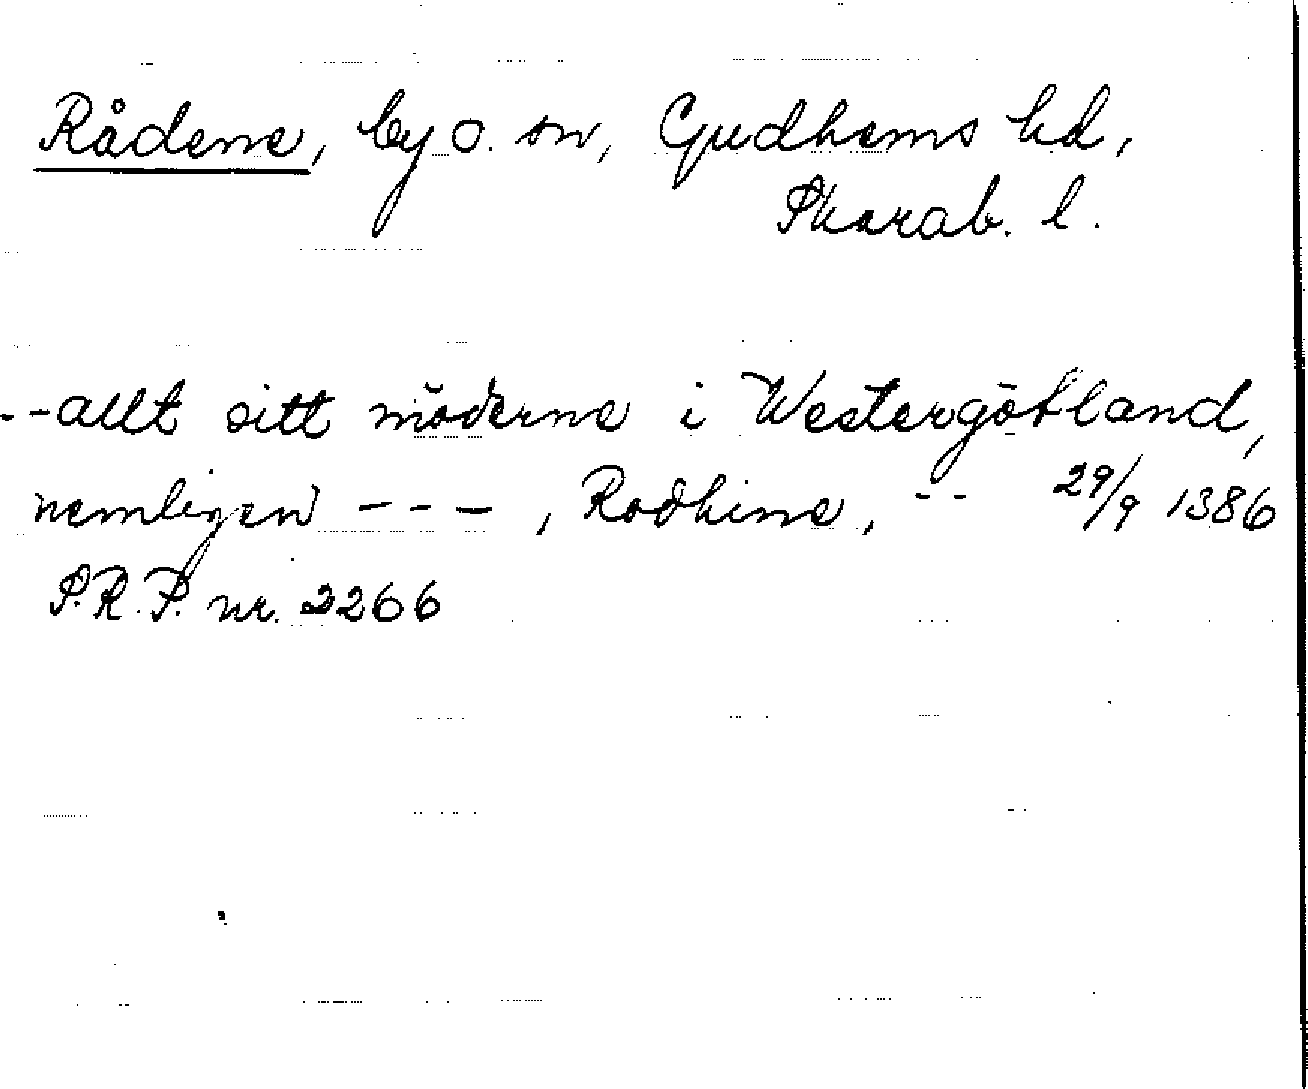 Rådene, by o. sn, Gudhems hd,
Skarab. l.
--allt sitt möderne i Westergötland,
nemligen ---, Rodhine, -- 29/9 1386
S.R.P. nr. 2266